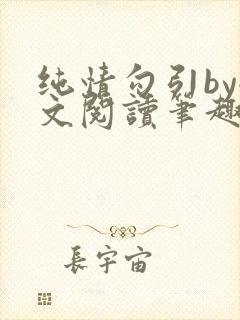 纯情勾引by
文閱讀筆趣
長宇宙